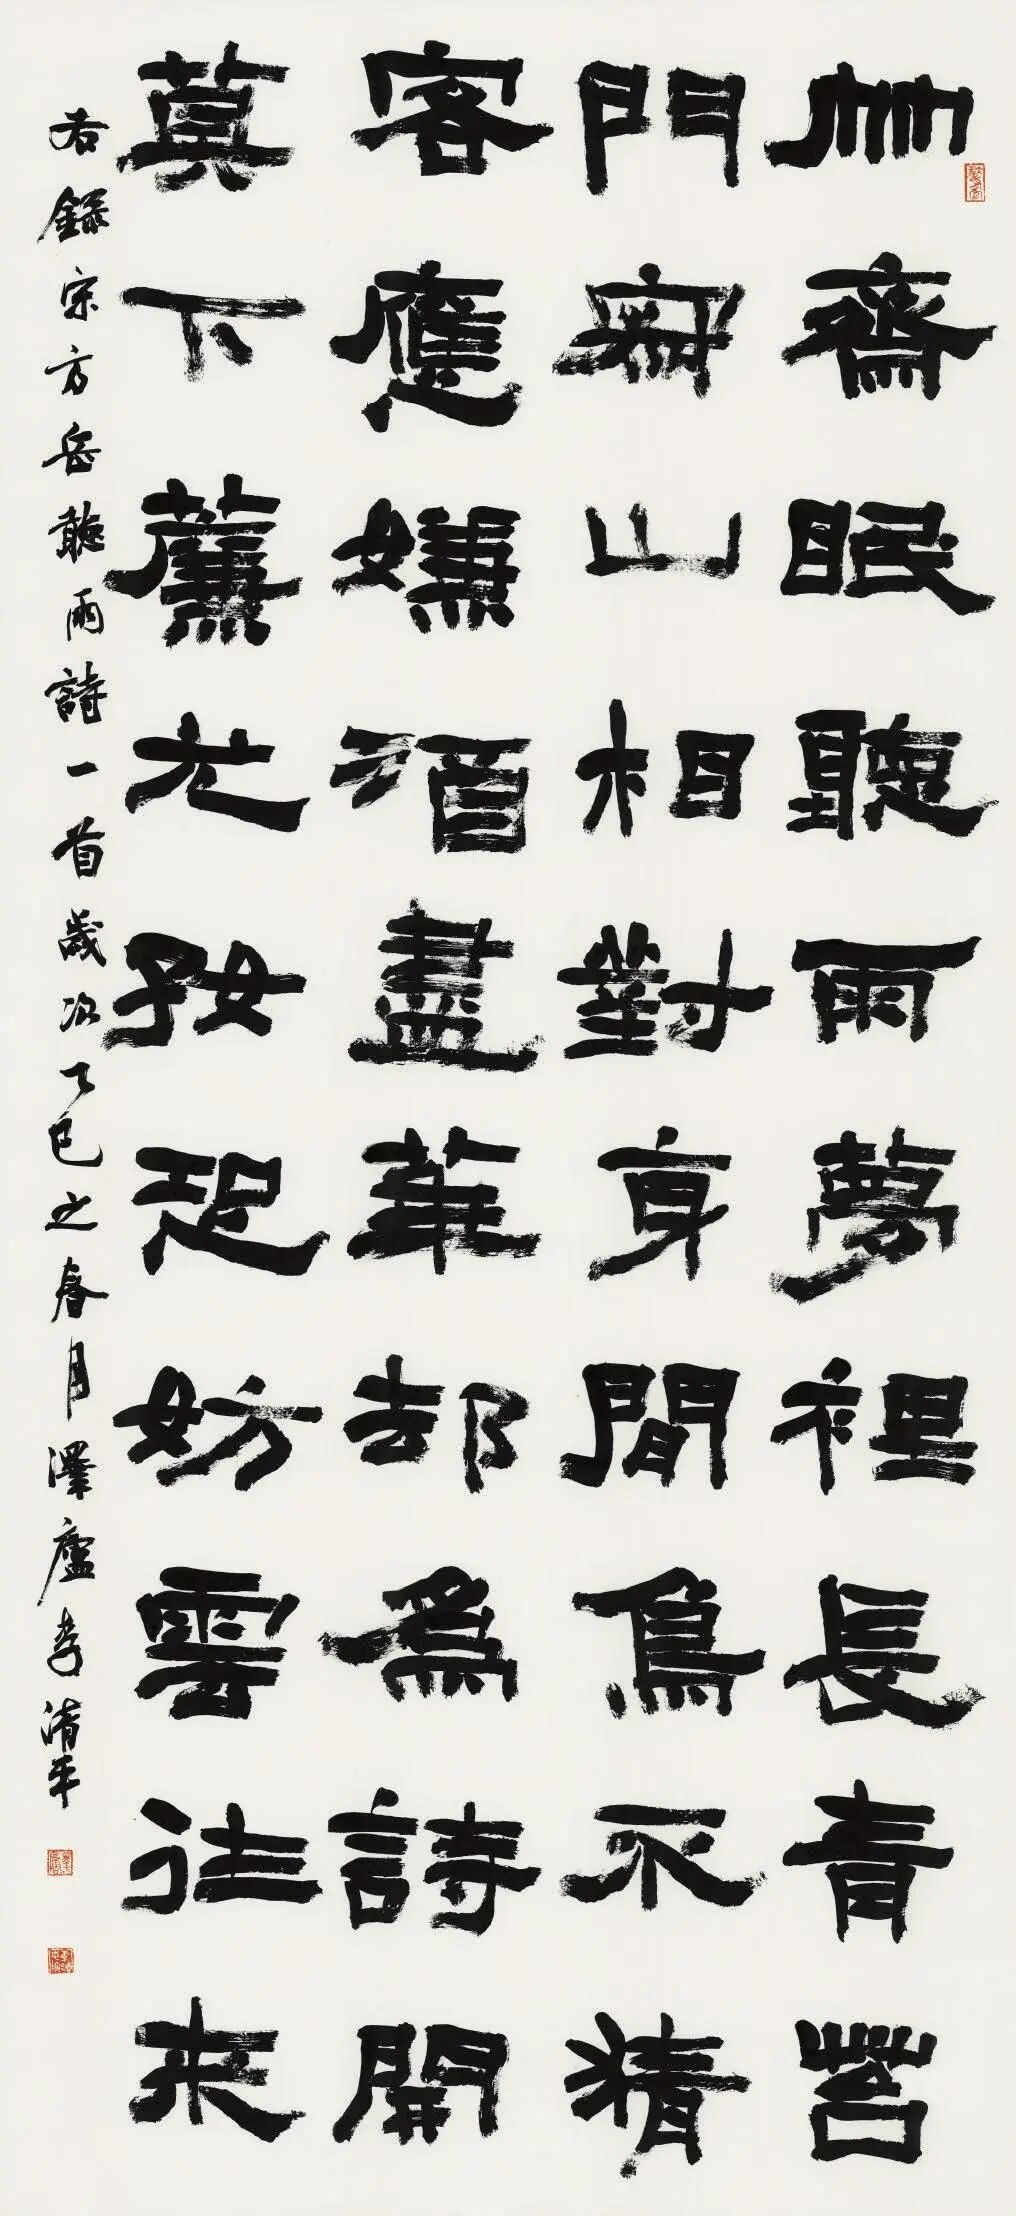 竹齋眠聽雨夢裡長青苔
門寂山相對身閒鳥不猜
客應嫌酒盡華却為詩開
莫下簾尤好恐妨雲往來
右錄宋方岳聽雨詩一首歲次乙巳之春月澤廬李清平